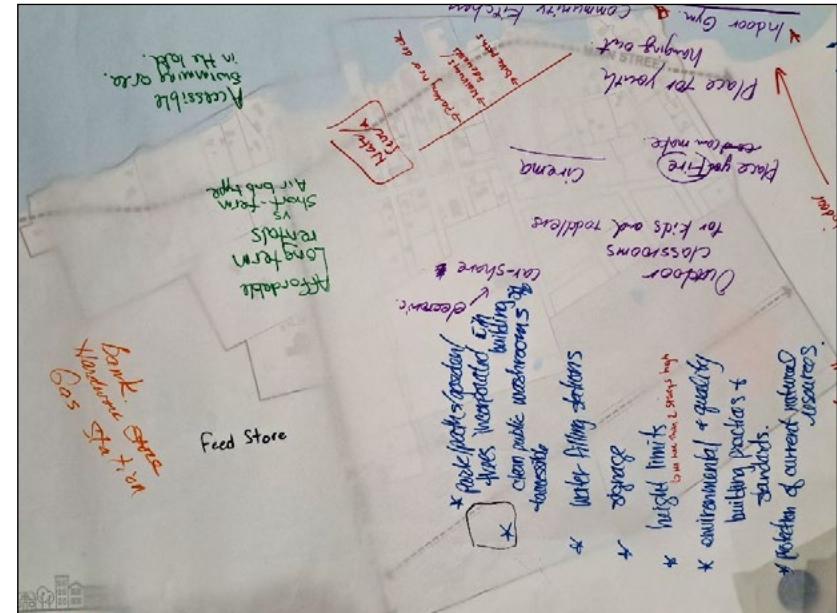 * Indoor Gym.
Community Kitchen
Place for youth
hanging out.
MAIN STREET
Place you Fire
can mate.
Cinema
Outdoor
classrooms
for kids and toddlers
car-share
electronic.
Accessible
swimming area.
in the lake.
Affordable
Long term
rentals
vs
Short-term
Air bnb type
Bank.
Hardware store
Gas Station
Feed Store
* park/paths/garden/
trees incorporated
building
* clean public washrooms
accessible
* water filling stations
* signage
* height limits
no more than 2 storeys high
* environmental & quality
building practices &
standards.
* protection of current natural
resources.